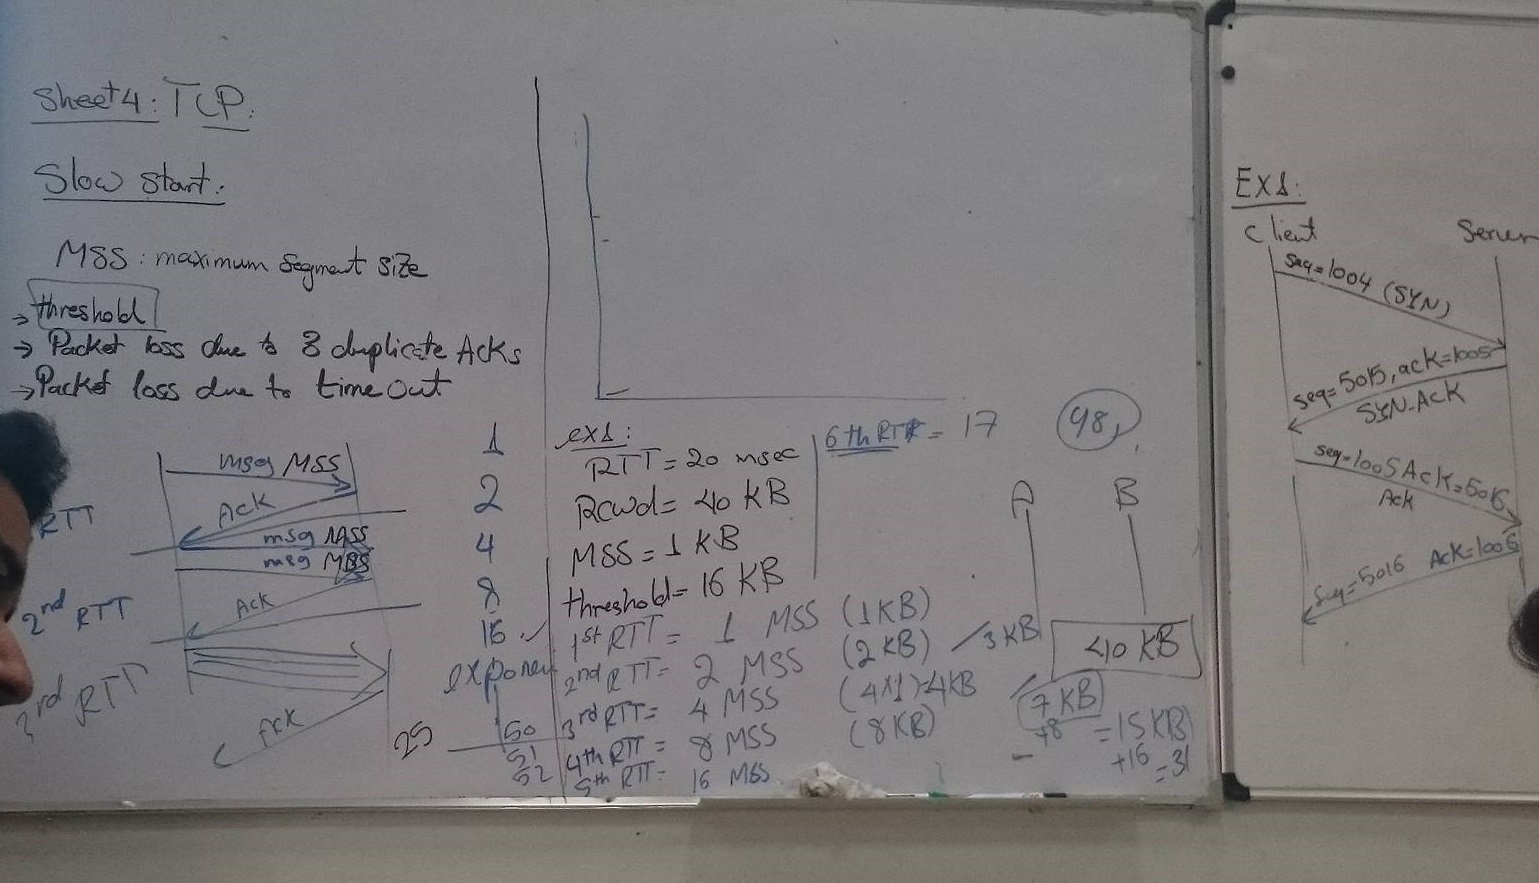 Sheet 4: TCP:
Slow start:
MSS: maximum segment size
→ threshold
→ Packet loss due to 3 duplicate Acks
→ Packet loss due to time out
msg MSS
Ack
RTT
msg MSS
msg MSS
Ack
2nd RTT
3rd RTT
Ack
1
2
4
8
16
exponen
25
50
51
52
ex1:
RTT = 20 msec
Rcwd = 40 KB
MSS = 1 KB
threshold = 16 KB
1st RTT = 1 MSS (1KB)
2nd RTT = 2 MSS (2KB) 3KB
3rd RTT = 4 MSS (4X1)=4KB 7KB
4th RTT = 8 MSS (8KB) +8 = 15KB
5th RTT = 16 MSS +16 = 31
6th RTT = 17
98
A B
40 KB
EX1:
Client Server
Seq=1004 (SYN)
Seq=5015, ack=1005
SYN-ACK
Seq=1005 Ack=5016
Ack
Seq=5016 Ack=1006